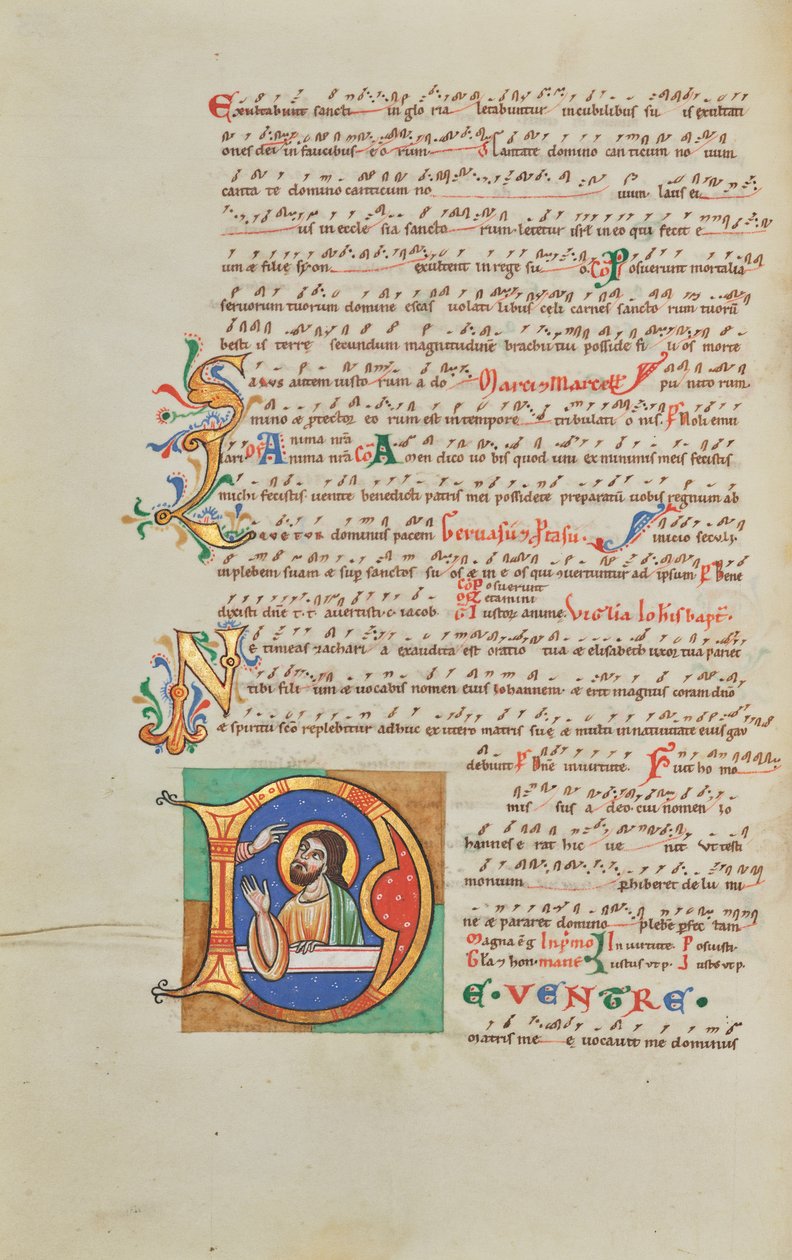 Exultabunt sancti in glo ria letabuntur in cubilibus su is exultati
ones dei in faucibus eo rum Cantate domino can ticum no uum
canta te domino canticum no uum laus ei
us in eccle sia sancto rum letetur isrl in eo qui fecit e
um & filię syon exultent in rege su o. Cō Posuerunt mortalia
seruorum tuorum domine escas uolati libus cęli carnes sancto rum tuorū
besti is terrę secundum magnitudinē brachii tui posside fi li os morte
Salus autem iusto rum a do Marci & Marcell pu nito rum
mino & ptector eo rum est in tempore tribulati o nis. Ps Noli emu
lari. Of Anima nrā Anima nrā Cō Amen dico uo bis quod uni ex minimis meis fecistis
michi fecistis uenite benedicti patris mei possidete preparatū uobis regnum ab
Loquetur dominus pacem Geruasii & Ptasii. initio seculi.
in plebem suam & sup sanctos su os & in e os qui guertuntur ad ipsum Ps Bene
Cō Posuerunt
dixisti dnē t. t. auertisti. c. iacob. Lętamini
G Iustor anime. Vigilia Iohis bapt.
Ne timeas zachari a exaudita est oratio tua & elisabeth uxor tua pariet
tibi fili um & uocabis nomen eius Iohannem & erit magnus coram dnō
& spiritu scō replebitur adhuc ex utero matris suę & multi in natiuitate eius gau
debunt Ps Dnē in uirtute. Fuit ho mo
mis sus a deo cui nomen Io
hannes e rat hic ue nit ut testi
monium phiberet de lu mi
ne & pararet domino plebē pfec tam
Magna ēg In pmo In uirtute. Posuisti.
Glā & hon. mane Iustus ut p. Iustus ut p.
DE VENTRE
matris me ę uocauit me dominus